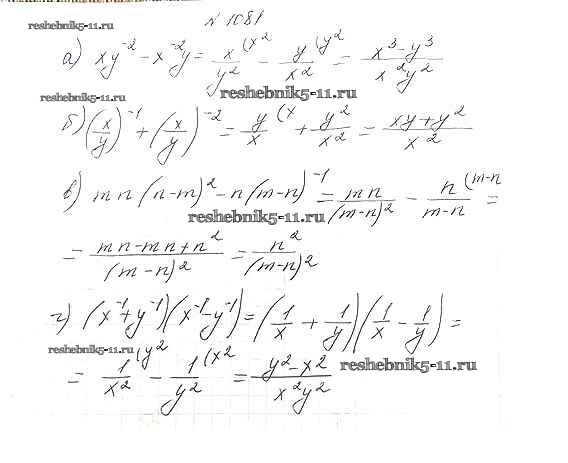 № 1081
reshebnik5-11.ru
а) xy⁻² - x⁻²y = x/y² (x² - y/x² (y² = x³-y³/x²y²
reshebnik5-11.ru
reshebnik5-11.ru
б) (x/y)⁻¹ + (x/y)⁻² = y/x (x + y²/x² = xy+y²/x²
в) mn(n-m)² - n(m-n)⁻¹ = mn/(m-n)² - n/m-n (m-n =
reshebnik5-11.ru
= mn-mn+n²/(m-n)² = n²/(m-n)²
г) (x⁻¹+y⁻¹)(x⁻¹-y⁻¹) = (1/x + 1/y)(1/x - 1/y) =
reshebnik5-11.ru
= 1/x² (y² - 1/y² (x² = y²-x²/x²y²
reshebnik5-11.ru